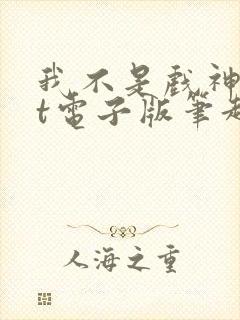 我不是戲神
t電子版筆趣
人海之重